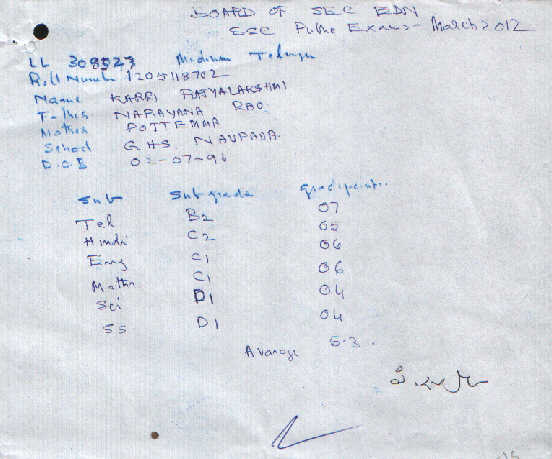 BOARD OF SEC EDN
SSC Public Exams - March 2012
LL 308523 Midium Telugu
Roll Number 1205118702
Name KARRI RAJYALAKSHMI
NARAYANA RAO
Mother POTTEMMA
School GHS NAUPADA.
D.O.B 02-07-96
Sub Sub grade Gradepoint.
Tel B2 07
Hindi C2 05
Eng C1 06
Maths C1 06
Sci D1 04
SS D1 04
Avarage 5.3.